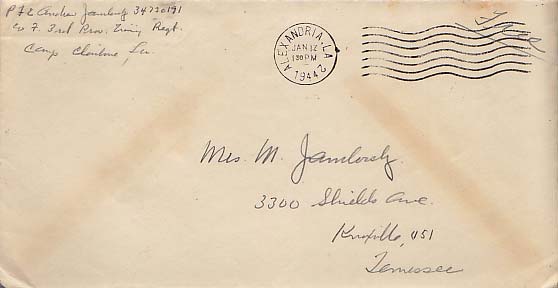 Pfc Andrew Jamborsky 34730191
Co F. 3rd Prov. Trng Regt.
Camp Claiborne, La.
ALEXANDRIA, LA.
JAN 12
1 30 PM
1944
2
Free
Mrs. M. Jamborsky
3300 Shields Ave.
Knoxville,
Tennessee